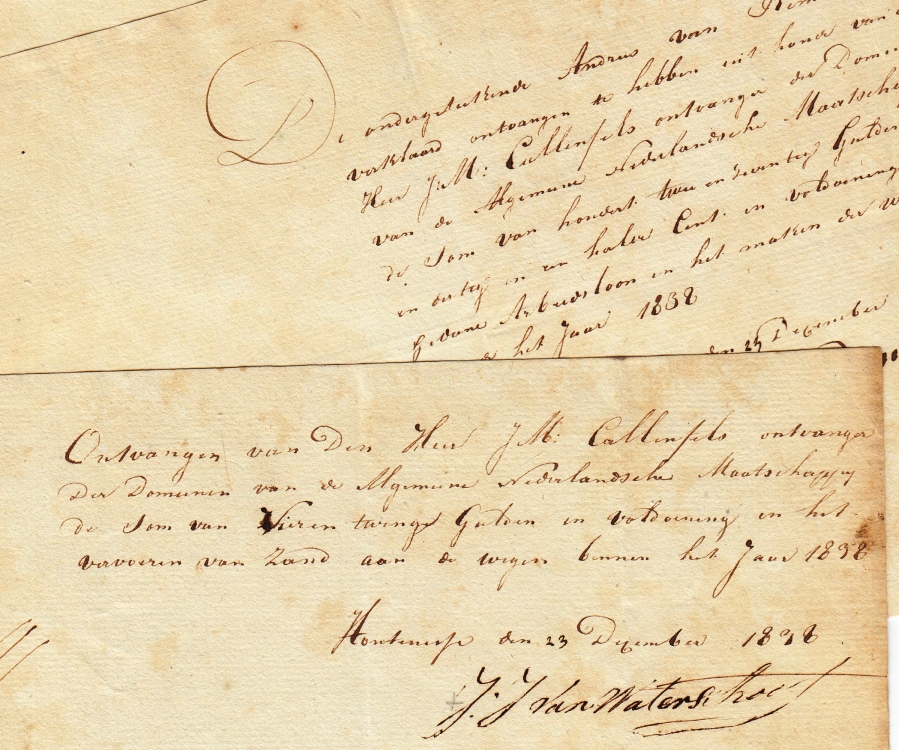 De ondergetekende Andries van
verklaard ontvangen te hebben uit hande van
Heer J:M: Callenfels ontvanger der Domei
van de Algemeine Nederlandsche Maatscha
de Som van hondert twee en zeventig Gulden
en dertig en een halve Cent in voldoening
gedane Arbeidsloon in het maken der w
het Jaar 1838
den 23 December
Ontvangen van Den Heer J:M: Callenfels ontvanger
Der Domeinen van de Algemeine Nederlandsche Maatschappy
de Som van Vier en twinge Gulden in voldoening en het
vervoeren van Zand aan de wegen binnen het Jaar 1838
Hontenisse den 23 December 1838
J: J Van Waterschoot